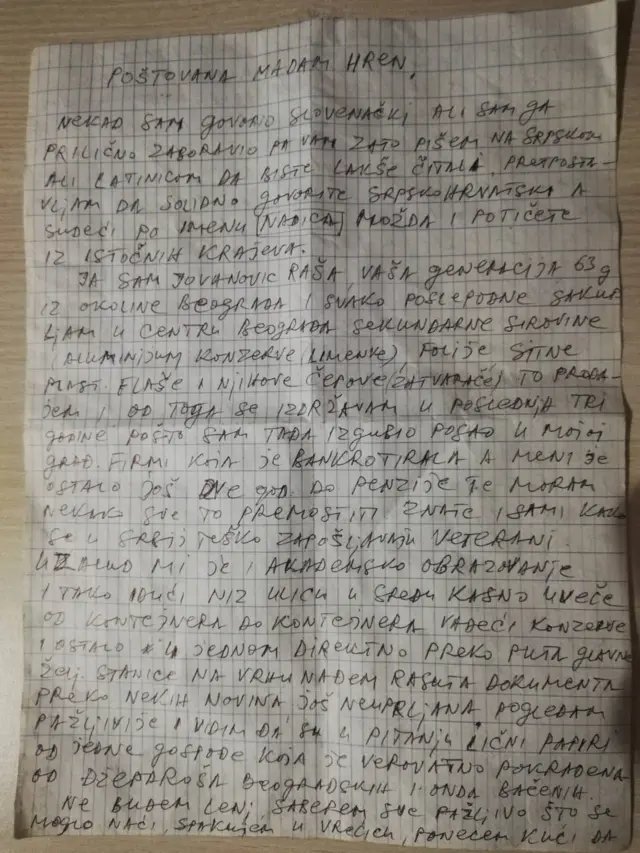 POŠTOVANA MADAM HREN,
NEKAD SAM GOVORIO SLOVENAČKI ALI SAM GA
PRILIČNO ZABORAVIO PA VAM ZATO PIŠEM NA SRPSKOM
ALI LATINICOM DA BISTE LAKŠE ČITALA. PRETPOSTA-
VLJAM DA SOLIDNO GOVORITE SRPSKOHRVATSKI A
SUDEĆI PO IMENU (NADICA) MOŽDA I POTIČETE
IZ ISTOČNIH KRAJEVA.
JA SAM JOVANOVIC RAŠA, VAŠA GENERACIJA 63 g
IZ OKOLINE BEOGRADA I SVAKO POSLEPODNE SAKUP
LJAM U CENTRU BEOGRADA SEKUNDARNE SIROVINE
(ALUMINIJUM KONZERVE (LIMENKE), FOLIJE SITNE
PLAST. FLAŠE I NJIHOVE ČEPOVE (ZATVARAČE) TO PRODA-
JEM I OD TOGA SE IZDRŽAVAM U POSLEDNJA TRI
GODINE POŠTO SAM TADA IZGUBIO POSAO U MOJOJ
GRAĐ. FIRMI KOJA JE BANKROTIRALA A MENI JE
OSTALO JOŠ DVE GOD. DO PENZIJE TE MORAM
NEKAKO SVE TO PREMOSTITI ZNATE I SAMI KAKO
SE U SRBIJI TEŠKO ZAPOŠLJAVAJU VETERANI.
MI JE I AKADEMSKO OBRAZOVANJE
I TAKO IDUĆI NIZ ULICU U SREDU KASNO UVEČE
OD KONTEJNERA DO KONTEJNERA VADEĆI KONZERVE
I OSTALO U JEDNOM DIREKTNO PREKO PUTA GLAVNE
ŽELJ. STANICE NA VRHU NAĐEM RASUTA DOKUMENTA
PREKO NEKIH NOVINA JOŠ NEUPRLJANA POGLEDAM
PAŽLJIVIJE I VIDIM DA SU U PITANJU LIČNI PAPIRI
OD JEDNE GOSPOĐE KOJA JE VEROVATNO POKRADENA
OD DŽEPAROŠA BEOGRADSKIH I ONDA BAČENIH.
NE BUDEM LENJ, SABEREM SVE PAŽLJIVO ŠTO SE
MOGLO NAĆI, SPAKUJEM U VREĆICU, PONESEM KUĆI DA